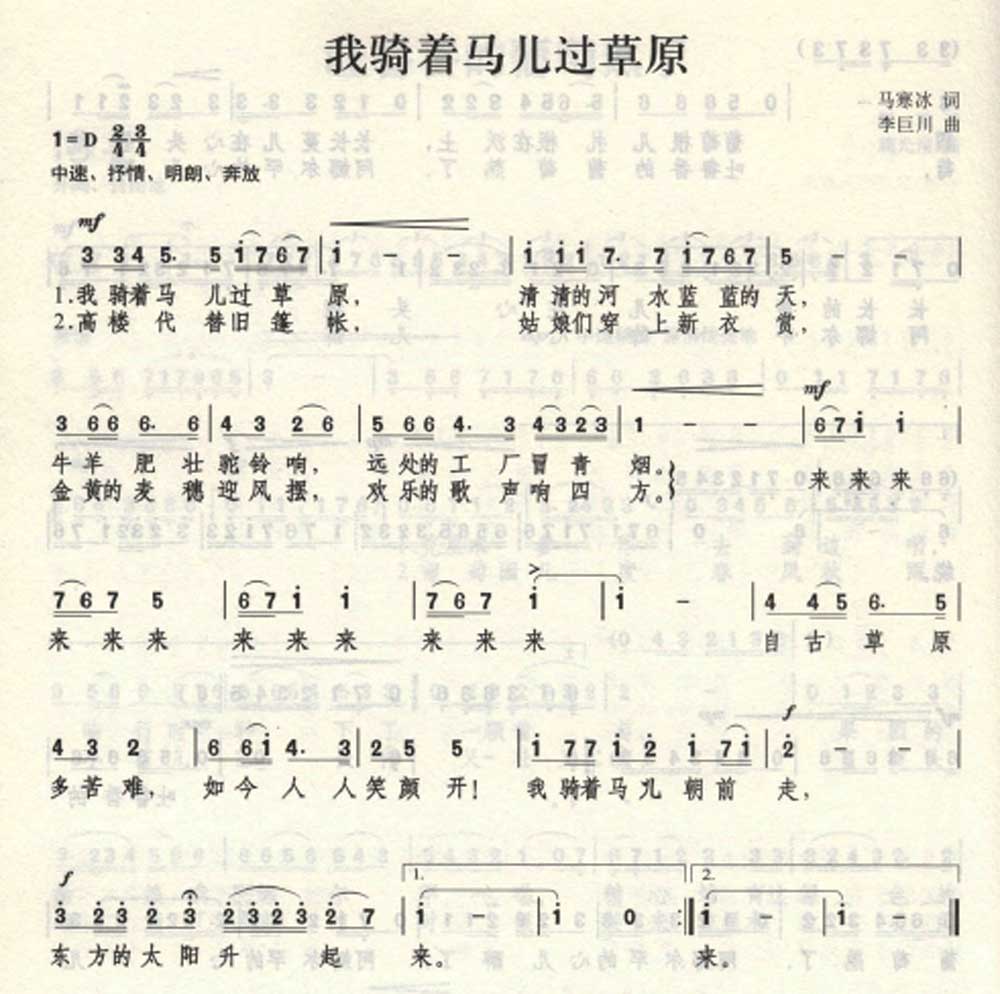 我骑着马儿过草原
马寒冰 词
李巨川 曲
1=D 2/4 3/4
中速、抒情、明朗、奔放
mf
3 34 5. 5 i767 | i - - | i i i 7. 7 i767 | 5 - - |
1.我 骑着马 儿过 草 原, 清 清的河 水蓝 蓝的 天,
2.高 楼 代 替旧 篷 帐, 姑 娘们穿 上新 衣 赏,
mf
3 66 6. 6 | 4 3 2 6 | 5 66 4. 3 4323 | 1 - - | 67i i |
牛 羊 肥 壮 驼 铃 响, 远 处的 工 厂 冒 青 烟。 来 来 来
金 黄的 麦 穗 迎 风 摆, 欢 乐的 歌 声 响 四 方。
767 5 | 67i i | 767 i | i - | 4 45 6. 5 |
来 来 来 来 来 来 来 来 来 自 古 草 原
f
4 3 2 | 6 6i 4. 3 | 2 5 5 | i 77i 2 i 7i | 2 - - |
多 苦 难, 如 今 人 人 笑 颜 开! 我 骑着马 儿 朝 前 走,
f 1. 2.
3 23 2 3 2323 2 7 | i - | i 0 :| i - | i - ||
东 方的 太 阳 升 起 来。 来。